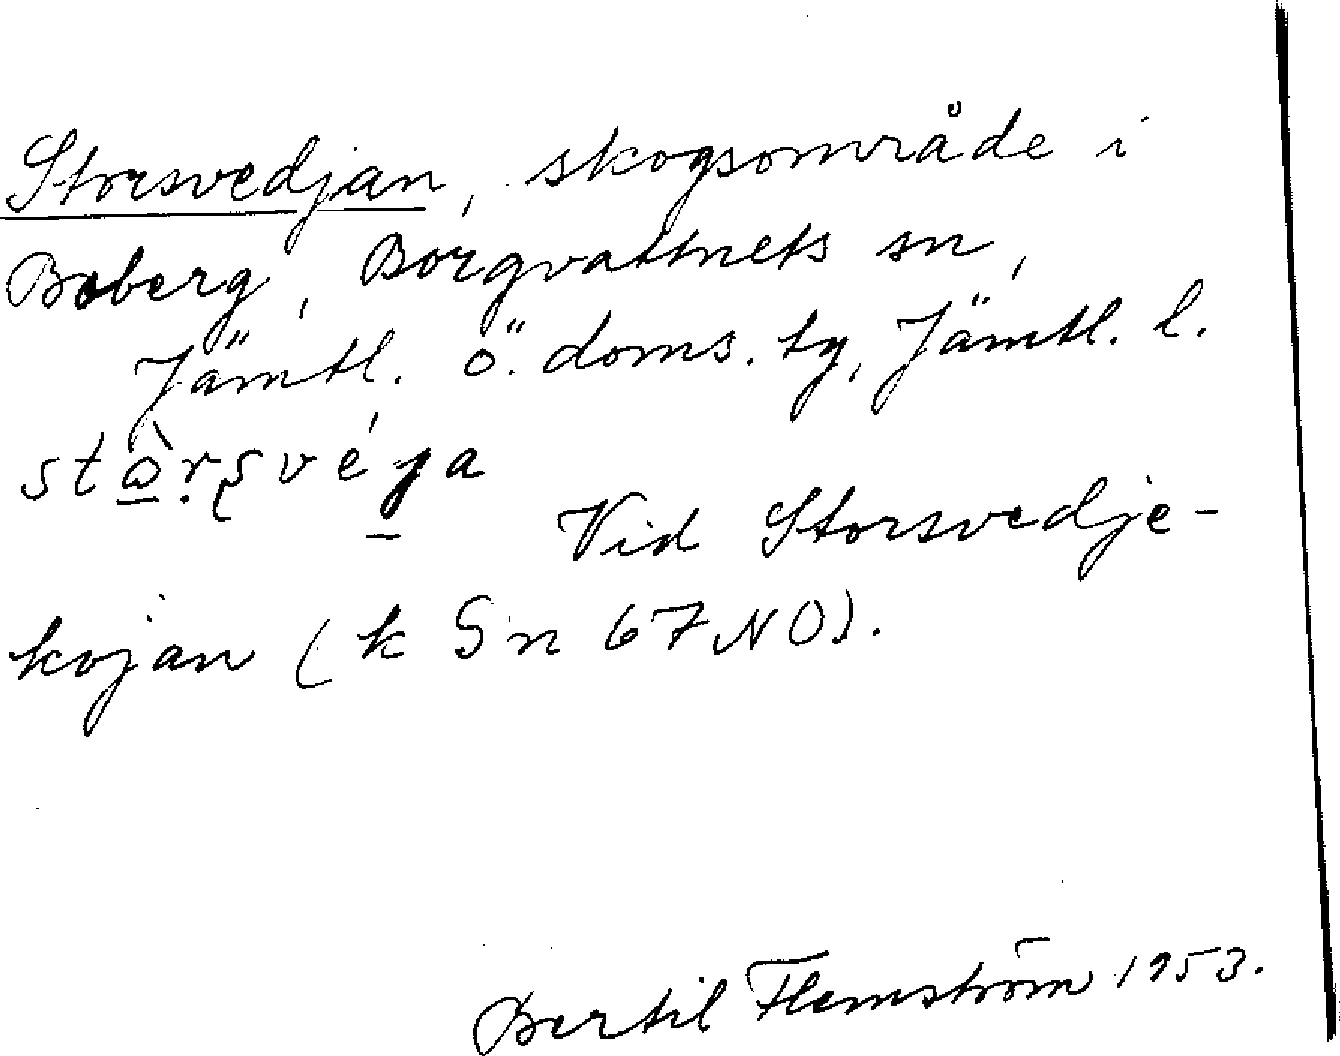 Storsvedjan, skogsområde i
Boberg, Borgvattnets sn,
Jämtl. ö. doms. tg, Jämtl. l.
stɷ̠̀rʂvéja̠
Vid Storsvedje-
kojan (k Sn 67 NO).
Bertil Flemström 1953.